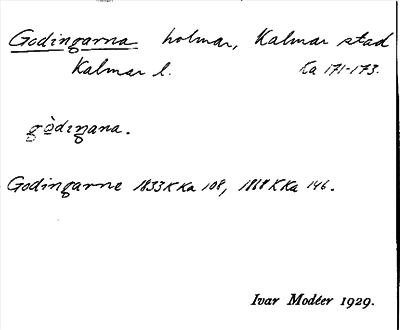 Godingarna holmar, Kalmar stad
Kalmar l. Ka 171-173.
gòdiŋana.
Godingarne 1833 K Ka 108, 1868 K Ka 146.
Ivar Modéer 1929.